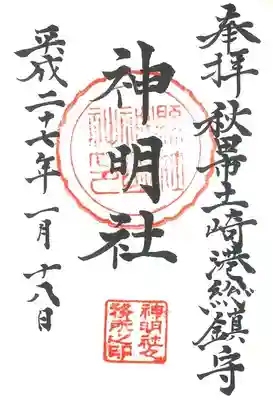 奉拝 秋田土崎港総鎮守
神明社
平成二十七年一月十八日
神明社々務所之印